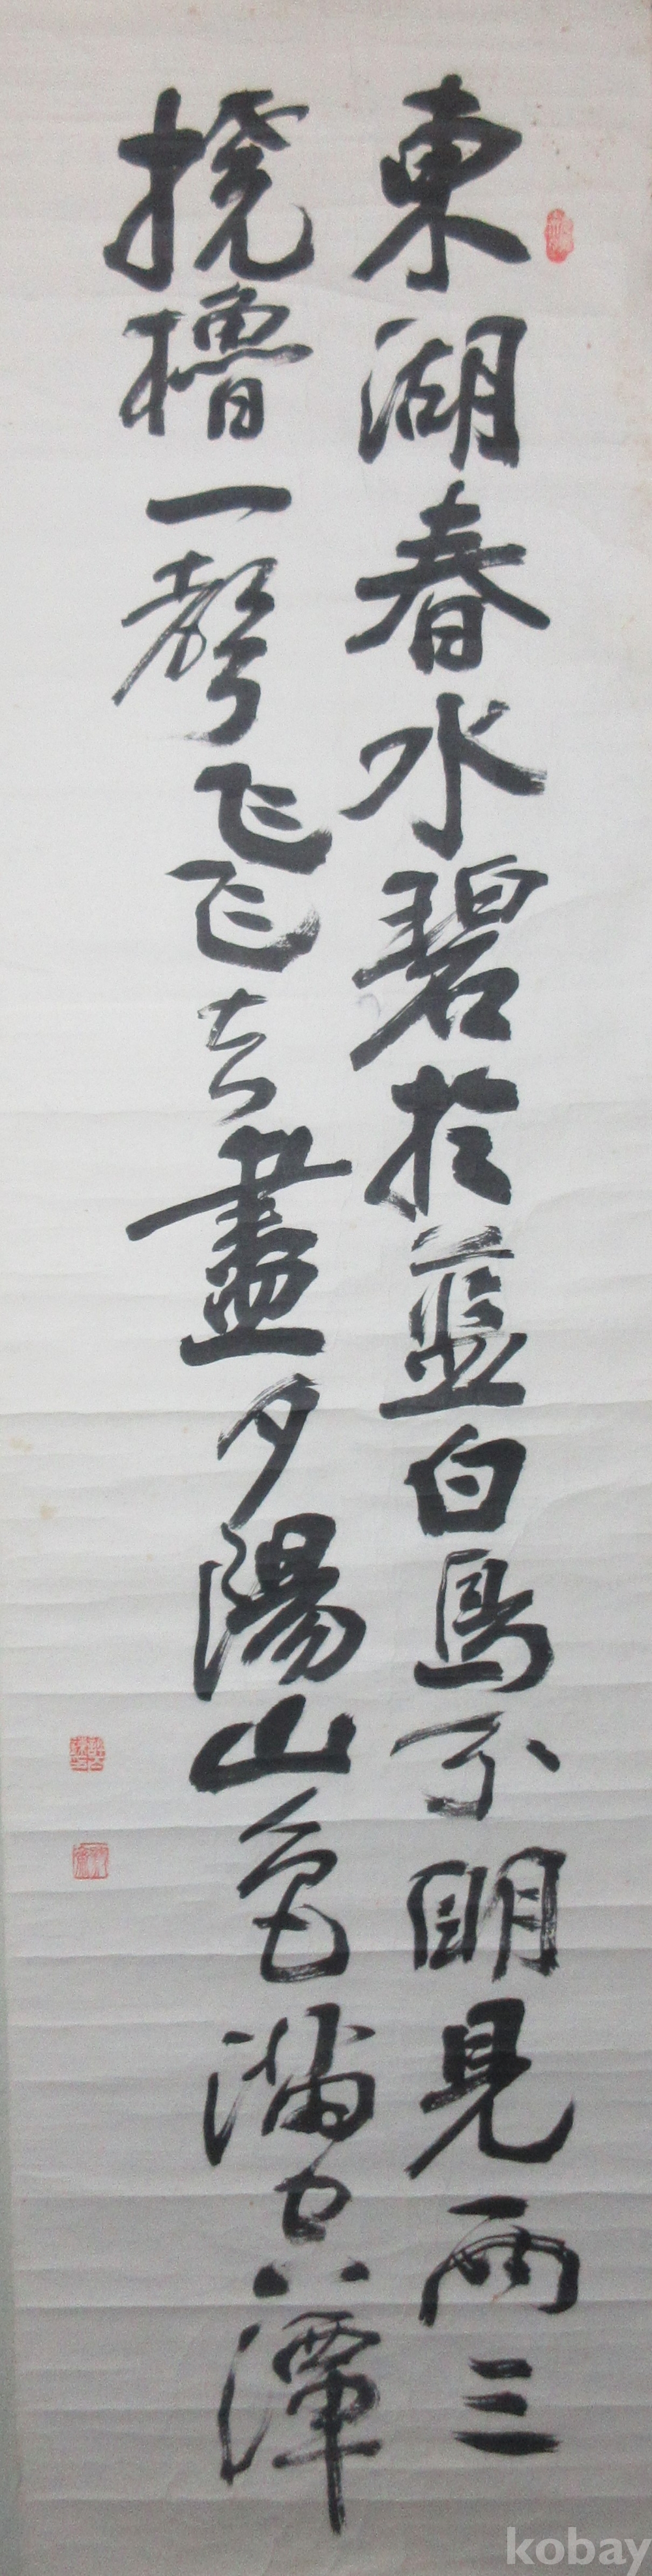 東湖春水碧於藍白鳥分明見兩三
橈櫓一聲飛飛去盡夕陽山色滿空潭
kobay